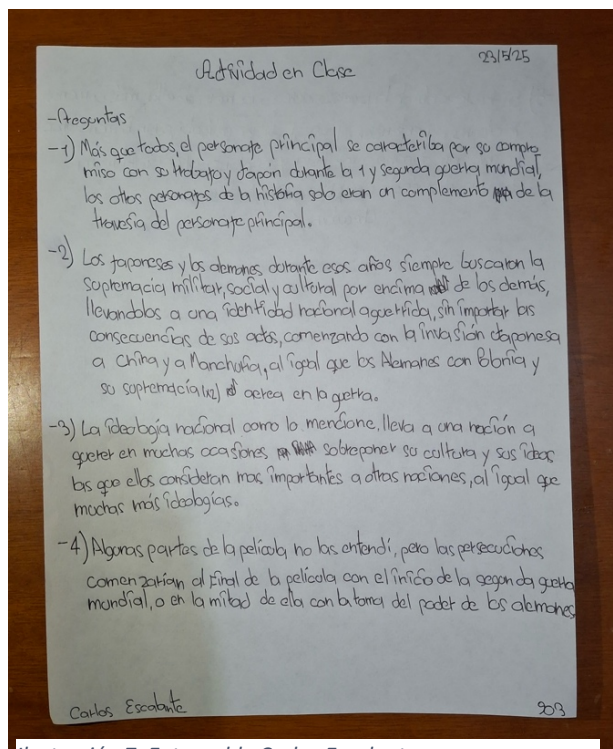 23/5/25
Actividad en Clase
-Preguntas
-1) Más que todos, el personaje principal se caracteriza por su compro
miso con su trabajo y Japón durante la 1 y segunda guerra mundial,
los otros personajes de la historia solo eran un complemento de la
travesía del personaje principal.
-2) Los japoneses y los alemanes durante esos años siempre buscaron la
supremacia militar, social y cultural por encima de los demás,
llevandolos a una identidad nacional aguerrida, sin importar las
consecuencias de sus actos, comenzando con la invasión Japonesa
a China y a Manchuria, al igual que los Alemanes con Polonia y
su supremacía (x2) aerea en la guerra.
-3) La ideología nacional como lo mencione, lleva a una nación a
querer en muchas ocasiones sobreponer su cultura y sus ideas
las que ellos consideran mas importantes a otras naciones, al igual que
muchas más ideologías.
-4) Algunas partes de la película no las entendí, pero las persecuciones
comenzarían al final de la película con el inicio de la segunda guerra
mundial, o en la mitad de ella con la toma del poder de los alemanes
Carlos Escalante
903